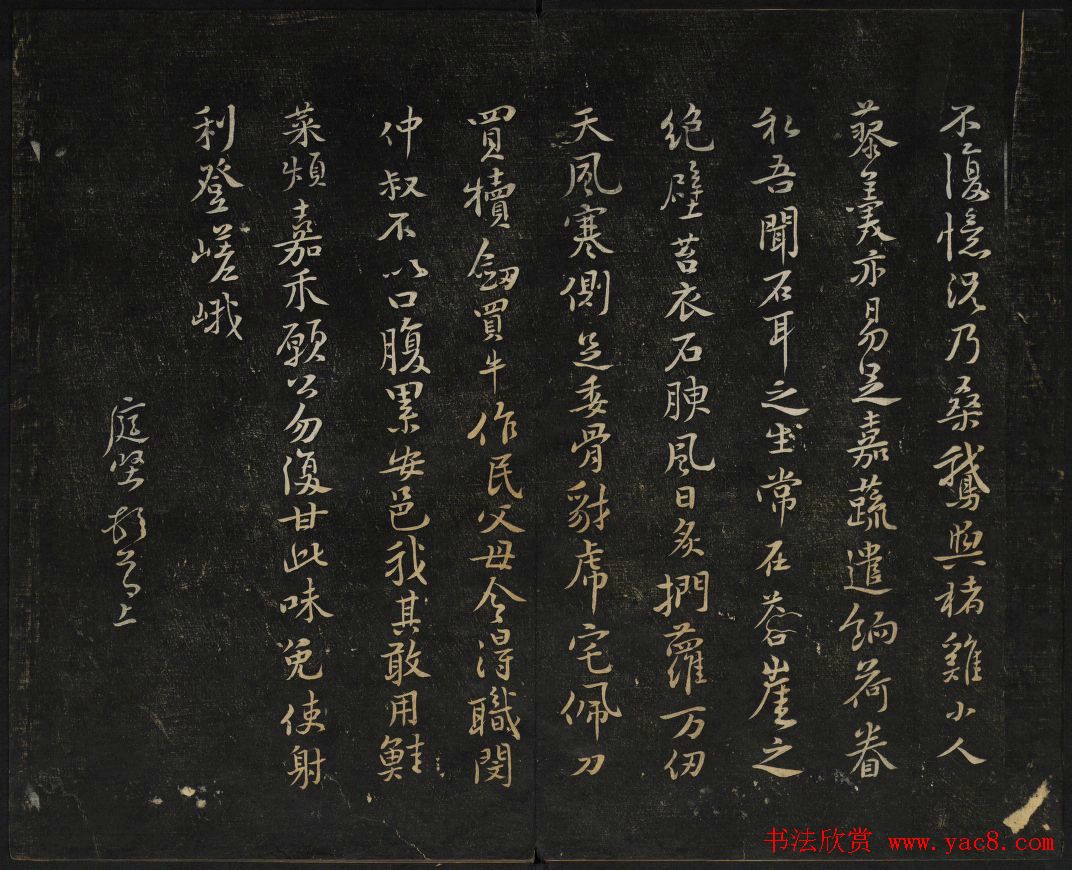 不復憶況乃桑鵝與楮雞小人
藜羹亦易足嘉蔬遣餉荷眷
私吾聞石耳之生常在蒼崖之
絕壁苔衣石腴風日炙捫蘿万仞
天風寒側足委骨豺虎宅佩刀
買犢劔買牛作民父母今得職閔
仲叔不以口腹累安邑我其敢用鮭
菜煩嘉禾願公勿復甘此味免使射
利登嵯峨
庭堅頓首上
书法欣赏 www.yac8.com